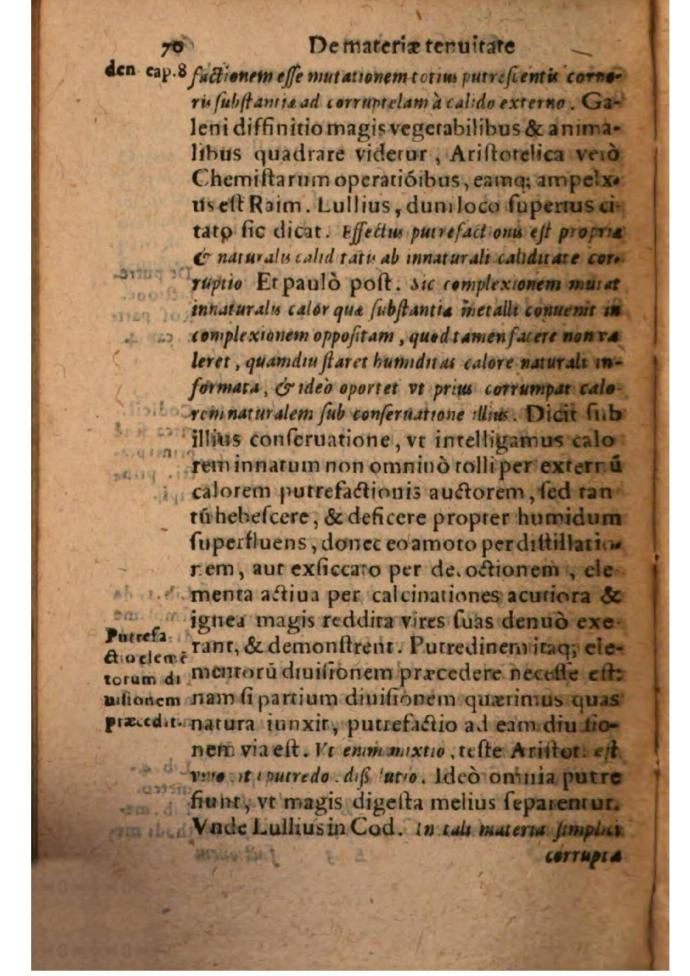 70 De materiæ tenuitate
den cap.8
factionem esse mutationem totius putrescentis corpo-
ris substantiæ ad corruptelam à calido externo. Ga-
leni diffinitio magis vegetabilibus & anima-
libus quadrare videtur, Aristotelica verò
Chemistarum operatiõibus, eamq; amplex-
us est Raim. Lullius, dum loco superius ci-
tato sic dicat. Effectus putrefactionis est propria
& naturalis calid tatis ab innaturali caliditate cor-
ruptio Et paulò post. Sic complexionem mutat
innaturalis calor quæ substantiæ metalli conuenit in
complexionem oppositam, quod tamen facere non va
leret, quamdiu staret humiditas calore naturali in-
formata, & ideò oportet vt prius corrumpat calo-
rem naturalem sub conseruatione illius. Dicit sub
illius conseruatione, vt intelligamus calo
rem innatum non omninò tolli per externũ
calorem putrefactionis auctorem, sed tan
tũ hebescere, & deficere propter humidum
superfluens, donec eo amoto per distillatio-
nem, aut exsiccato per decoctionem, ele-
menta actiua per calcinationes acutiora &
ignea magis reddita vires suas denuò exe-
rant, & demonstrent. Putredinem itaq; ele-
mentorũ diuisionem præcedere necesse est:
nam si partium diuisionem quærimus quas
natura iunxit, putrefactio ad eam diuisio-
nem via est. Vt enim mixtio, teste Aristot. est
vnio, ita putredo. dissolutio. Ideò omnia putre
fiunt, vt magis digesta melius separentur.
Vnde Lullius in Cod. In tali materia simplici
Putrefa-
ctio elemẽ
torum di
uisionem
præcedit.
corrupta